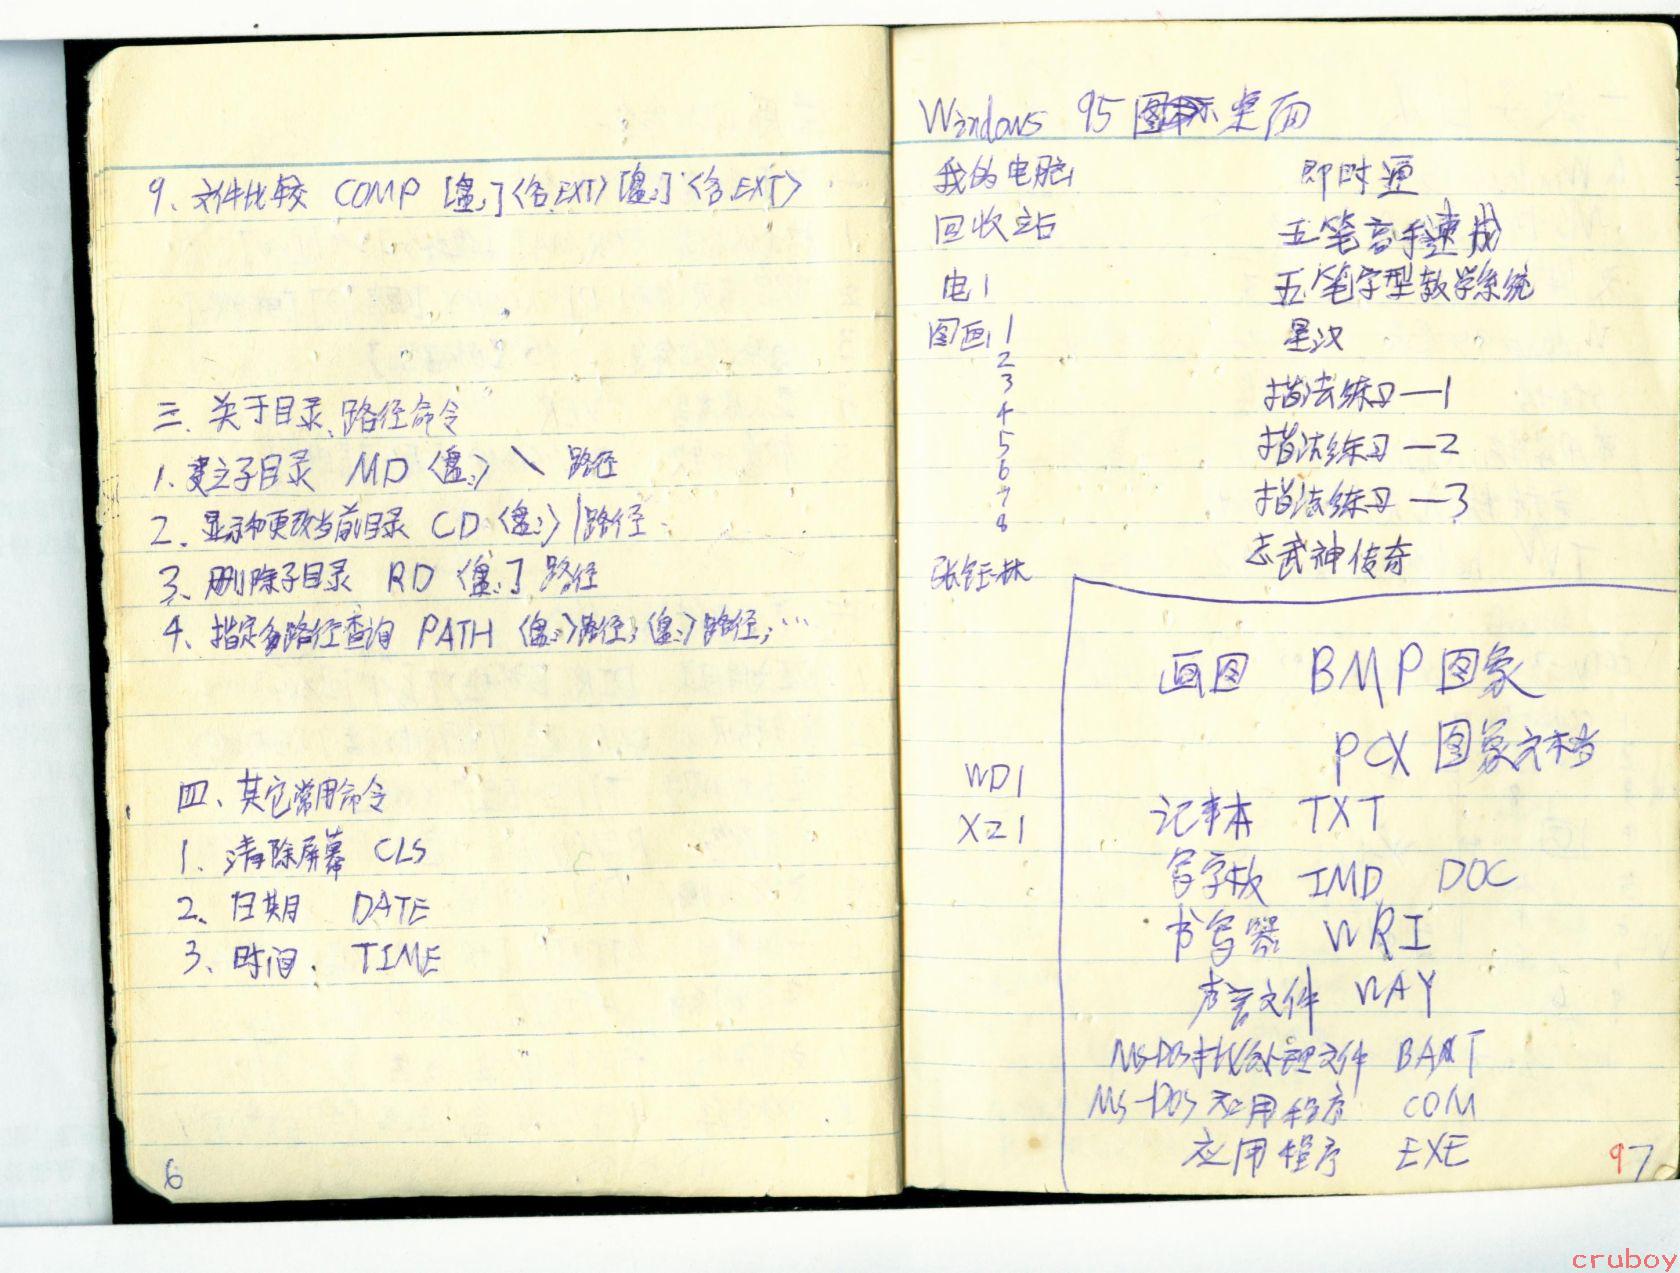 9、文件比较 COMP [盘:]〈名.EXT〉[盘:]〈名.EXT〉
三、关于目录、路径命令
1、建立子目录 MD〈盘:〉\ 路径
2、显示和更改当前目录 CD〈盘:〉\路径
3、删除子目录 RD〈盘:] 路径
4、指定多路径查询 PATH〈盘:〉路径;〈盘:〉路径;…
四、其它常用命令
1、清除屏幕 CLS
2、日期 DATE
3、时间、 TIME
6
Windows 95 桌面
我的电脑 即时通
回收站 五笔高手速成
电1 五笔字型教学系统
图画1 星汉
2
3 指法练习—1
4
5 指法练习—2
6
7 指法练习—3
8
志武神传奇
张钰林
画图 BMP 图象
PCX 图象文档
WD1
记事本 TXT
XZ1
写字板 IMD DOC
书写器 WRI
声音文件 WAY
MS-DOS批处理文件 BAT
MS-DOS应用程序 COM
应用程序 EXE
97
cruboy